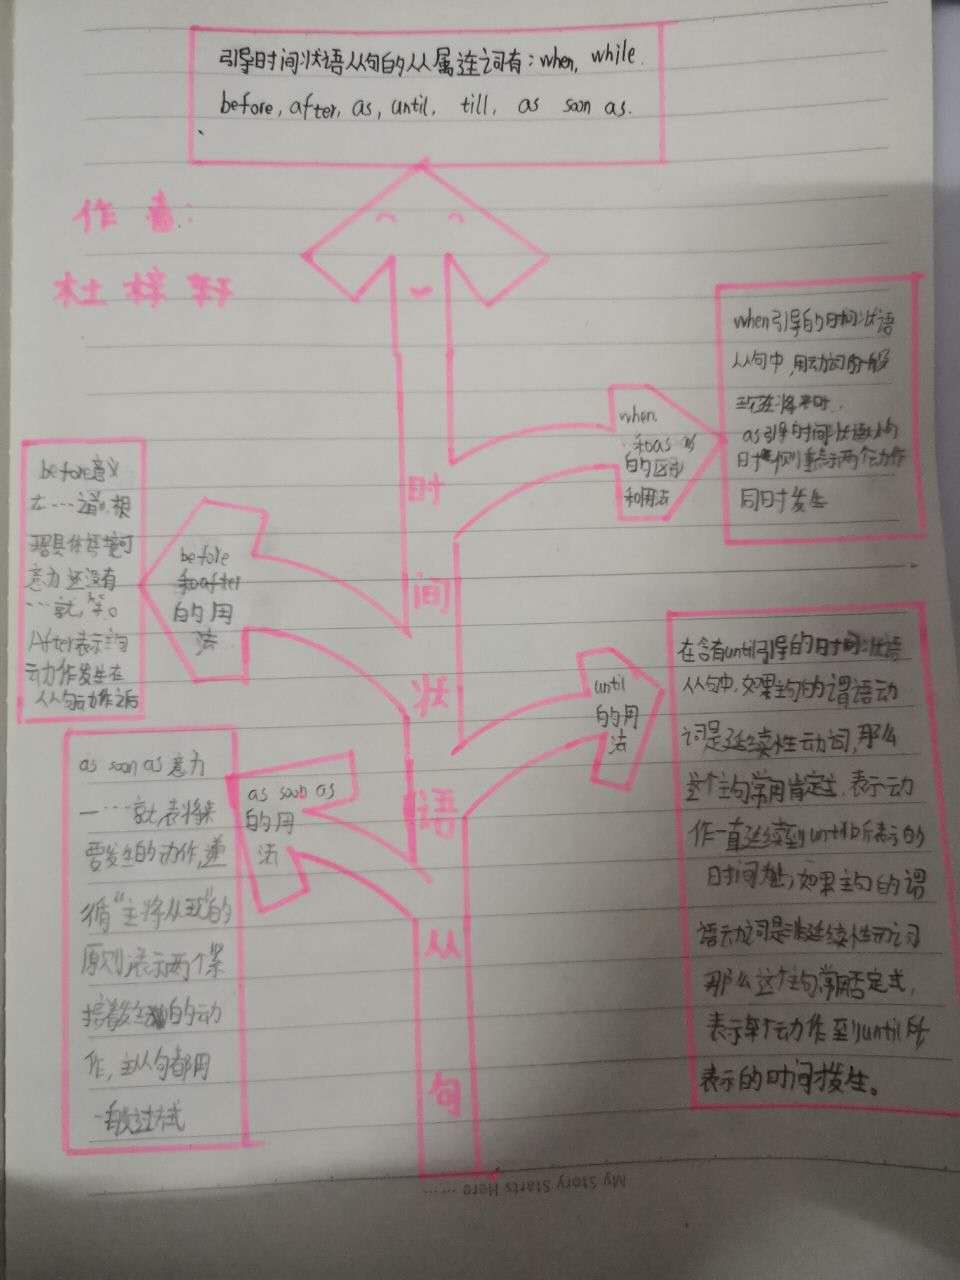 引导时间状语从句的从属连词有：when, while.
before, after, as, until, till, as soon as.
作者：
杜梓轩
时间状语从句
when.
和as
的区别
和用法
when引导的时间状语
从句中,用动词的一般
现在将来时.
as引导时间状语从句
时 则重表示两个动作
同时发生
before
和after
的用
法
before意义
在……之前,根
据具体语境可
意为还没有
……就,等。
After表示主句
动作发生在
从句动作之后
until
的用
法
在含有until引导的时间状语
从句中,如果主句为谓语动
词是延续性动词,那么
这个主句常用肯定式,表示动
作一直延续到until所表示的
时间为止,如果主句的谓
语动词是非延续性动词
那么这个主句常用否定式,
表示 动作至到until所
表示的时间才发生。
as soon as
的用
法
as soon as意为
一……就,表将来
要发生的动作,遵
循“主将从现”的
原则,表示两个紧
接着发生的动
作,主从句都用
一般过去式
My Story Starts Here ......